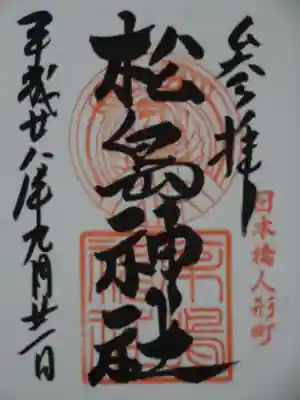 参拝
日本橋人形町
松島神社
平成廿八年九月廿一日